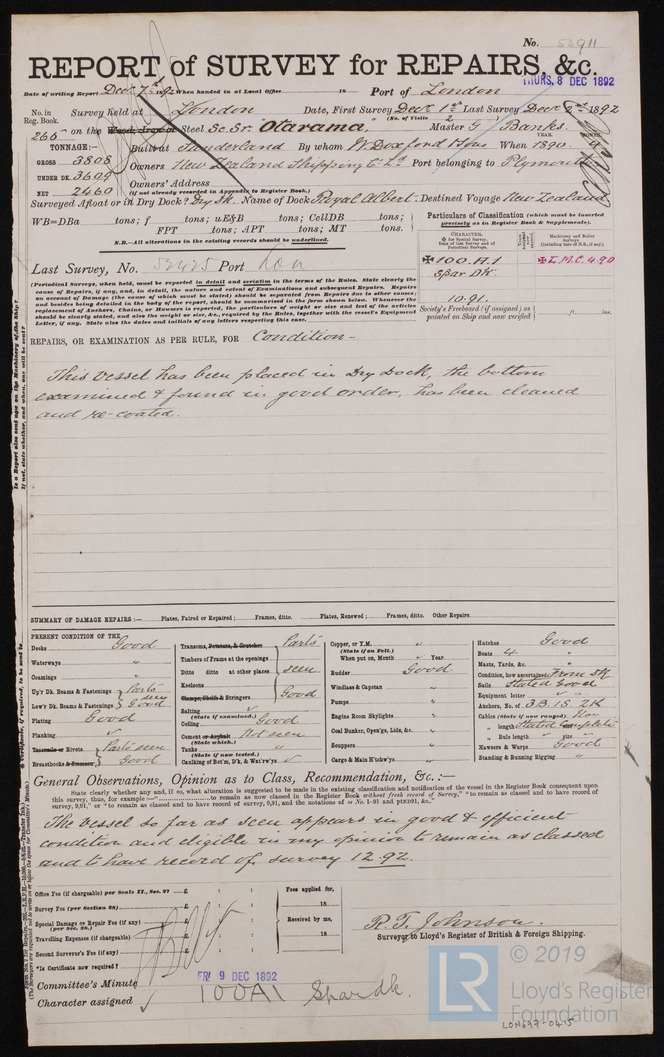 No. 53911
REPORT of SURVEY for REPAIRS, &c.
THURS, 8 DEC 1892
Date of writing Report Decr 7th 1892 When handed in at Local Office 18 Port of London
No. in Reg. Book. Survey held at London Date, First Survey Decr 1st Last Survey Decr 2nd 1892
(No. of Visits 2)
266 on the Wood, Iron or Steel Sc. Sr. "Otarama" Master G Banks.
TONNAGE:— Built at Sunderland By whom W. Doxford & Sons When 1890
YEAR. MONTH.
GROSS 3808 Owners New Zealand Shipping Co Ld Port belonging to Plymouth
UNDER DK. 3609 Owners' Address
NET 2460 (if not already recorded in Appendix to Register Book.)
Surveyed Afloat or in Dry Dock? Dry Dk. Name of Dock Royal Albert. Destined Voyage New Zealand
WB=DBa tons; f tons; uE&B tons; CellDB tons;
FPT tons; APT tons; MT tons.
N.B.—All alterations in the existing records should be underlined.
Particulars of Classification (which must be inserted precisely as in Register Book & Supplements).
CHARACTER.
✠ for Special Survey, Date of last Survey and of Periodical Surveys.
Machinery and Boiler Surveys (including date of N.B., if any).
✠100.A.1 ✠L.M.C 4.90
Spar Dk.
10.91.
Society's Freeboard (if assigned) as painted on Ship and now verified ft. ins.
Last Survey, No. 52425 Port Lon
(Periodical Surveys, when held, must be reported in detail and seriatim in the terms of the Rules. State clearly the
cause of Repairs, if any, and, in detail, the nature and extent of Examinations and subsequent Repairs. Repairs
on account of Damage (the cause of which must be stated) should be separated from Repairs due to other causes;
and besides being detailed in the body of the report, should be summarized in the form shown below. Whenever the
replacement of Anchors, Chains, or Hawsers is reported, the particulars of weight or size and test of the articles
should be clearly stated, and also the weight or size, &c., required by the Rules, together with the vessel's Equipment
Letter, if any. State also the dates and initials of any letters respecting this case.
REPAIRS, OR EXAMINATION AS PER RULE, FOR Condition—
This vessel has been placed in Dry Dock, the bottom
examined & found in good order, has been cleaned
and re-coated.
SUMMARY OF DAMAGE REPAIRS :— Plates, Faired or Repaired ; Frames, ditto. Plates, Renewed ; Frames, ditto. Other Repairs.
PRESENT CONDITION OF THE
Decks Good
Waterways "
Coamings "
Up'r Dk. Beams & Fastenings Parts seen
Low'r Dk. Beams & Fastenings Good
Plating Good
Planking ✓
Treenails or Rivets Parts seen
Breasthooks & Stemson Good
Transoms, Pointers, & Crutches Parts
Timbers of Frame at the openings
Ditto ditto at other places seen
Keelsons
Clamps, Shelfs & Stringers Good
Salting (State if examined.) ✓
Ceiling Good
Cement or Asphalt (State which.) Not seen
Tanks (State if now tested.) "
Caulking of Bot'm, D'k, & Wat'r'ys ✓
Copper, or Y.M. (State if on Felt.) "
When put on, Month " Year
Rudder Good
Windlass & Capstan "
Pumps "
Engine Room Skylights "
Coal Bunker, Open'gs, Lids, &c. "
Scuppers "
Cargo & Main H'tchw'ys "
Hatches Good
Boats 4 "
Masts, Yards, &c. "
Condition, how ascertained From Dk
Sails Stated Good
Equipment letter
Anchors, No. of 3B. 1S. 2K
Cables (State if now ranged) No
" length Stated Complete
" Rule length size
Hawsers & Warps Good
Standing & Running Rigging "
General Observations, Opinion as to Class, Recommendation, &c. :—
State clearly whether any, and if so, what alteration is suggested to be made in the existing classification and notification of the vessel in the Register Book consequent upon
this survey, thus, for example :—" to remain as now classed in the Register Book without fresh record of Survey," "to remain as classed and to have record of
survey, 9,91," or "to remain as classed and to have record of survey, 9,91, and the notations of
The vessel so far as seen appears in good & efficient
condition and eligible in my opinion to remain as classed
and to have record of survey 12.92.
Office Fee (if chargeable) per Scale II., Sec. 27 £ : :
Survey Fee (per Section 28) £ : :
Special Damage or Repair Fee (if any) (per Sec. 28.) £ : :
Travelling Expenses (if chargeable) £ : :
Second Surveyor's Fee (if any) £ : :
*Is Certificate now required?
Fees applied for, 18
Received by me, 18
R. T. Johnson.
Surveyor to Lloyd's Register of British & Foreign Shipping.
Committee's Minute FRI 9 DEC 1892
Character assigned 100A1 Spar dk.
© 2019
LR
Lloyd's Register
Foundation
LON697-0415